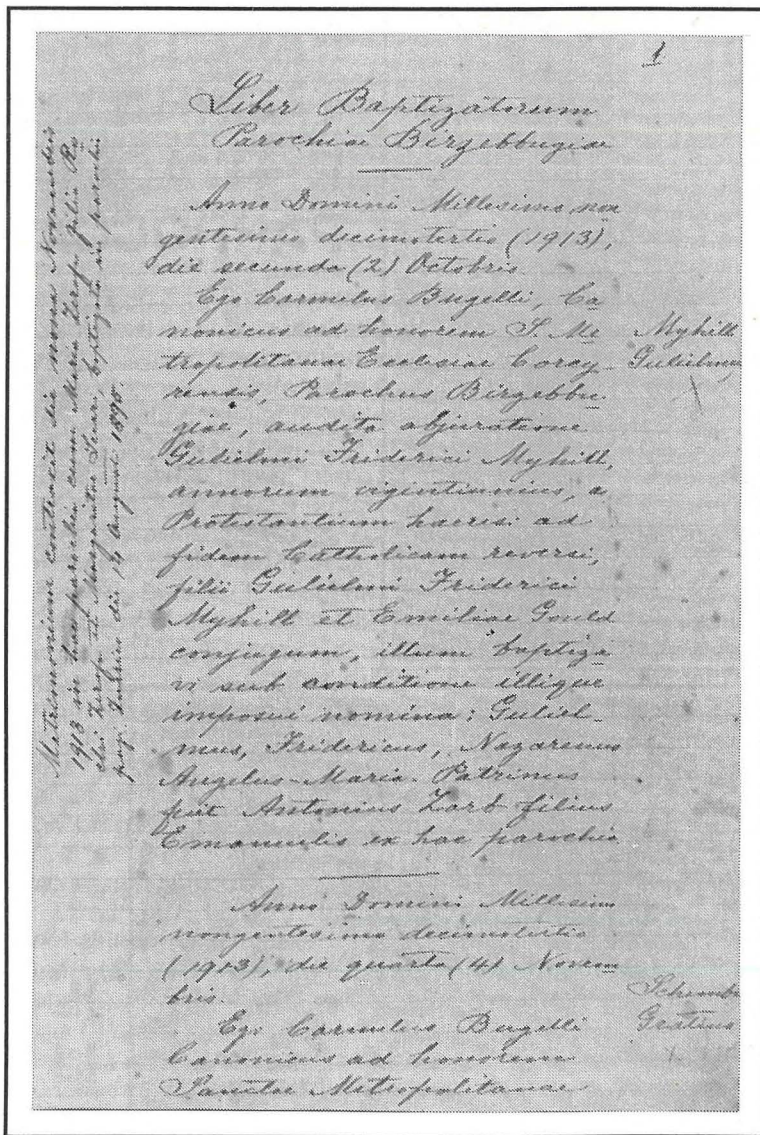 1
Liber Baptizatorum
Parochiae Birzebbugiae
Anno Domini Millesimo non
gentesimo decimotertio (1913),
die secunda (2) Octobris.
Ego Carmelus Bugelli, Ca
nonicus ad honorem S. Me
tropolitanae Ecclesiae Corcy-
rensis, Parochus Birzebbu
giae, audita abjuratione
Gulielmi Friderici Myhill,
annorum viginti, a
Protestantium haeresi ad
fidem Catholicam reversi,
filii Gulielmi Friderici
Myhill et Emiliae Gould
conjugum, illum baptiza
vi sub conditione illique
imposui nomina: Guliel-
mus, Fridericus, Nazarenus
Angelus-Maria. Patrinus
fuit Antonius Zarb filius
Emanuelis ex hac parochia
Myhill
Gulielmus
Anno Domini Millesimo
nongentesimo decimotertio
(1913), die quarta (4) Novem
bris.
Ego Carmelus Bugelli
Canonicus ad honorem
Sanctae Metropolitanae
Schembri
Gratius
Matrimonium contraxit die nona Novembris
1913 in hac parochia cum Maria filia
et Margaritae baptizata in parochia
die 14 August 1895